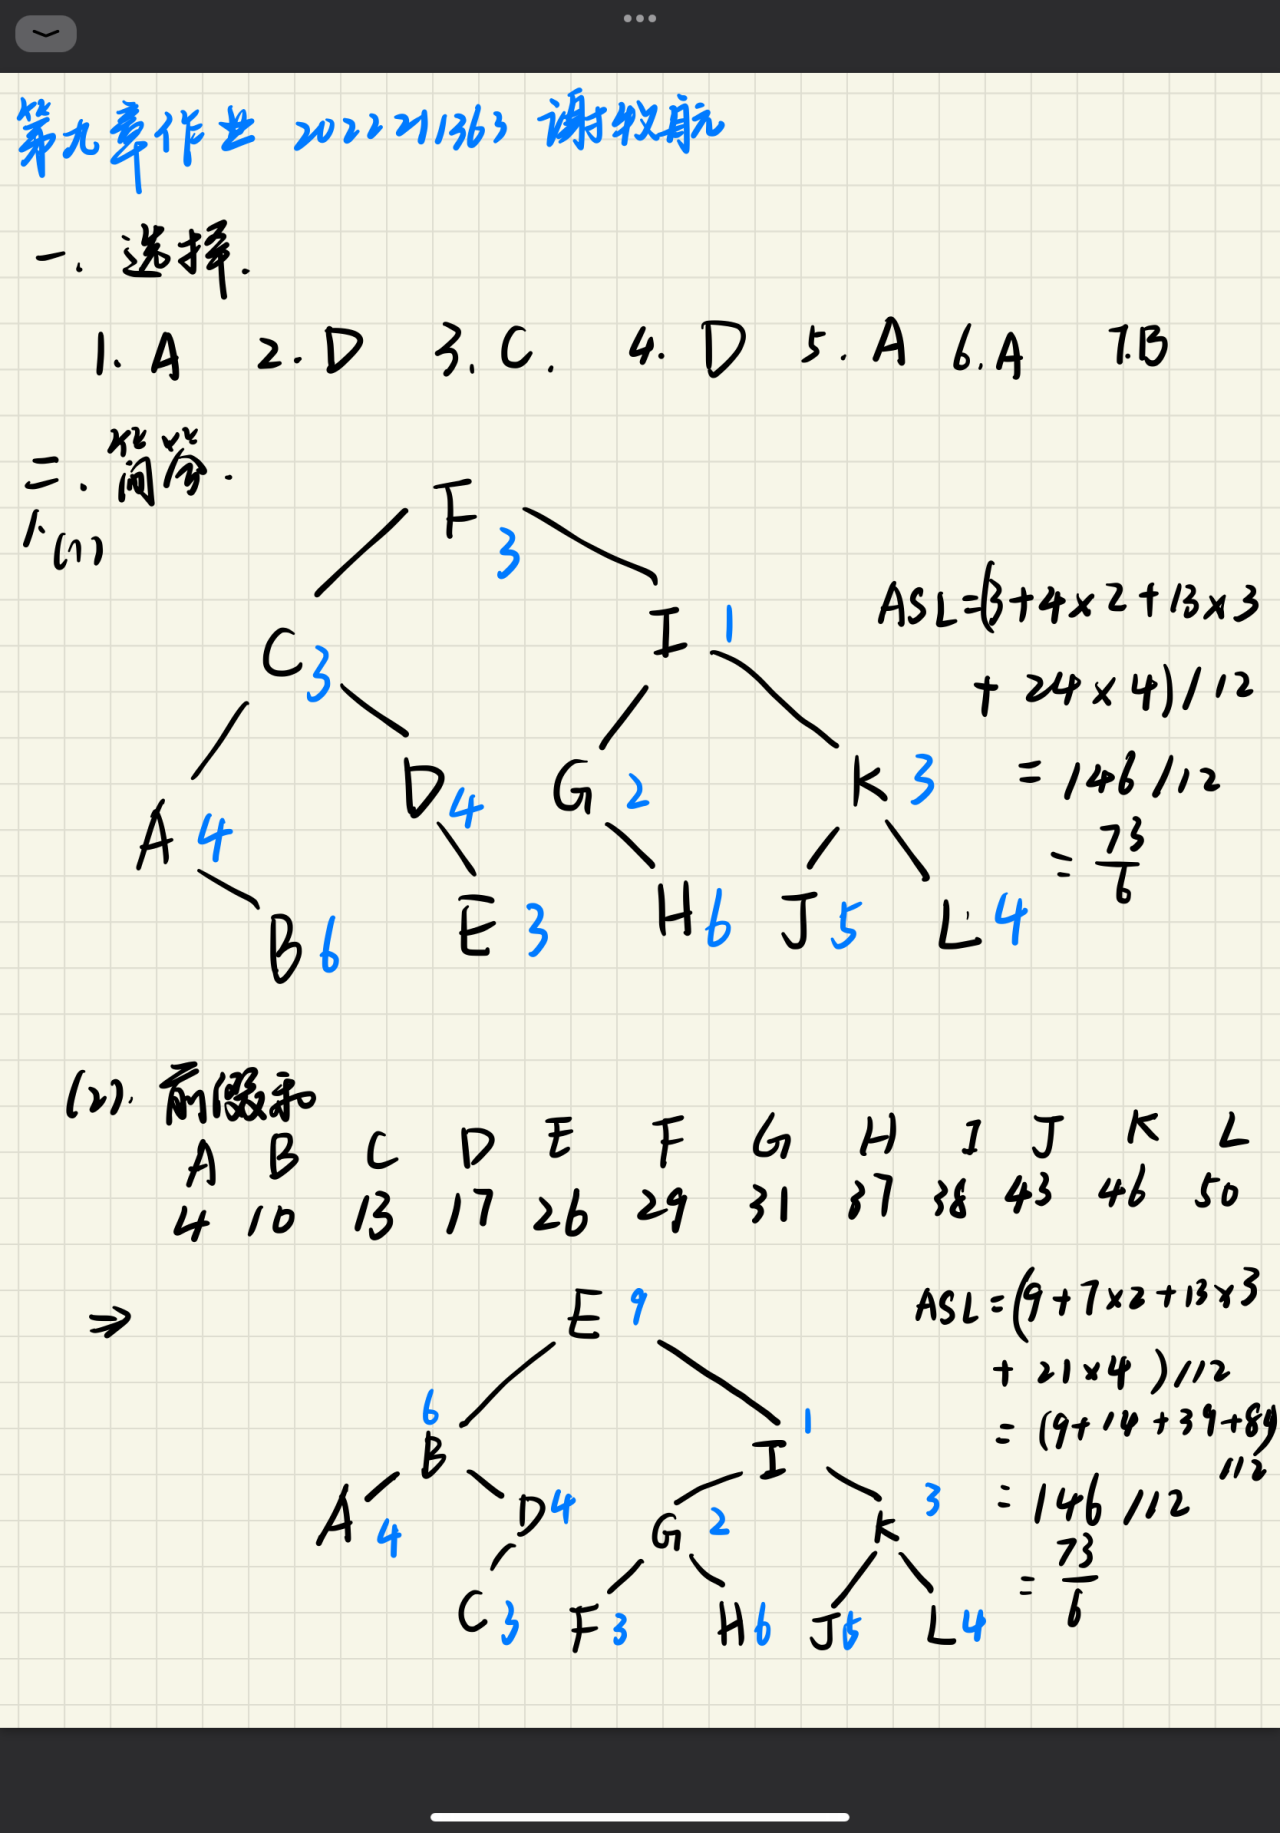 第九章作业 2022211363 谢牧航
一. 选择.
1. A 2. D 3. C. 4. D 5. A 6. A 7. B
二. 简答.
1. (1)
F 3
C 3 I 1
A 4 D 4 G 2 K 3
B 6 E 3 H 6 J 5 L 4
ASL=(3+4×2+13×3
+ 24×4)/12
= 146/12
= 73/6
(2). 前缀和
A B C D E F G H I J K L
4 10 13 17 26 29 31 37 38 43 46 50
⇒
E 9
B 6 I 1
A 4 D 4 G 2 K 3
C 3 F 3 H 6 J 5 L 4
ASL=(9+7×2+13×3
+ 21×4)/12
= (9+14+39+84)
/12
= 146/12
= 73/6